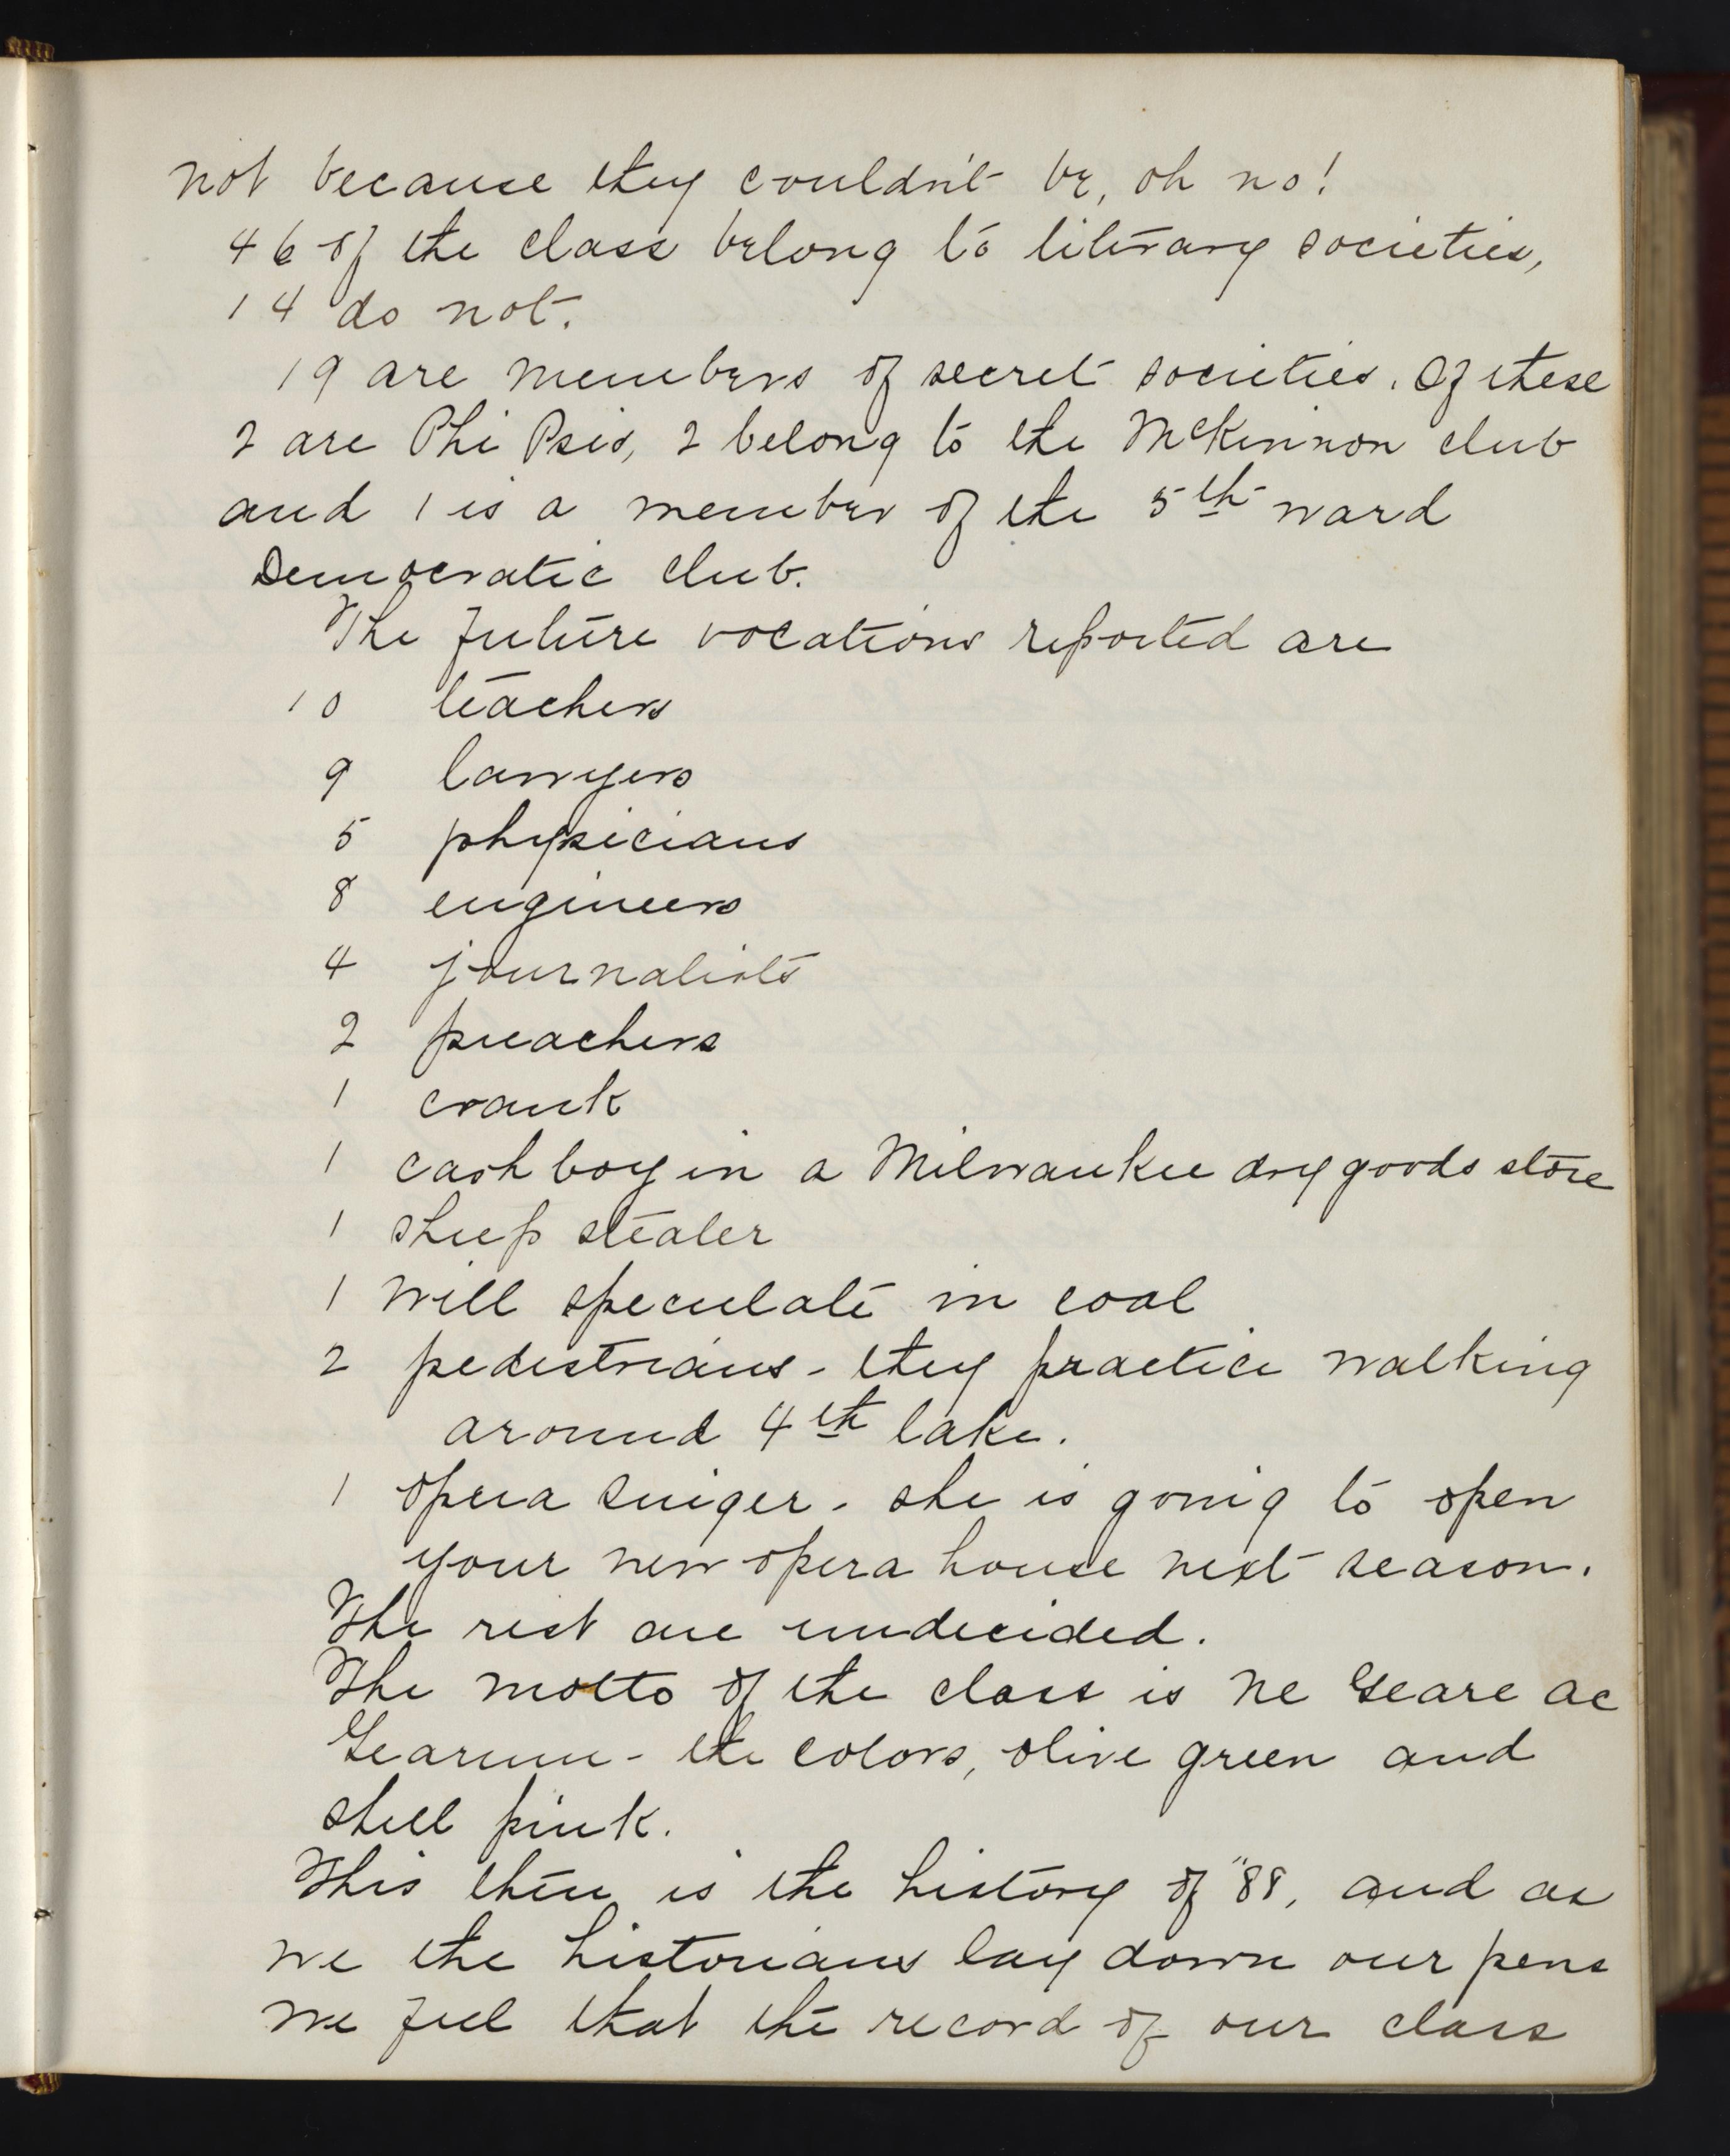 not because they couldn't be, oh no!
46 of the class belong to literary societies,
14 do not.
19 are members of secret societies. Of these
2 are Phi Psis, 2 belong to the McKinnon club
and 1 is a member of the 5th ward
Democratic club.
The future vocations reported are
10 teachers
9 lawyers
5 physicians
8 engineers
4 journalists
2 preachers
1 crank
1 cash boy in a Milwaukee dry goods store
1 sheep stealer
1 will speculate in coal
2 pedestrians - they practice walking
around 4th lake.
1 opera singer - she is going to open
your new opera house next season.
The rest are undecided.
The motto of the class is ne Geare ac
Gearum - the colors, olive green and
shell pink.
This then is the history of "88, and as
we the historians lay down our pens
we feel that the record of our class